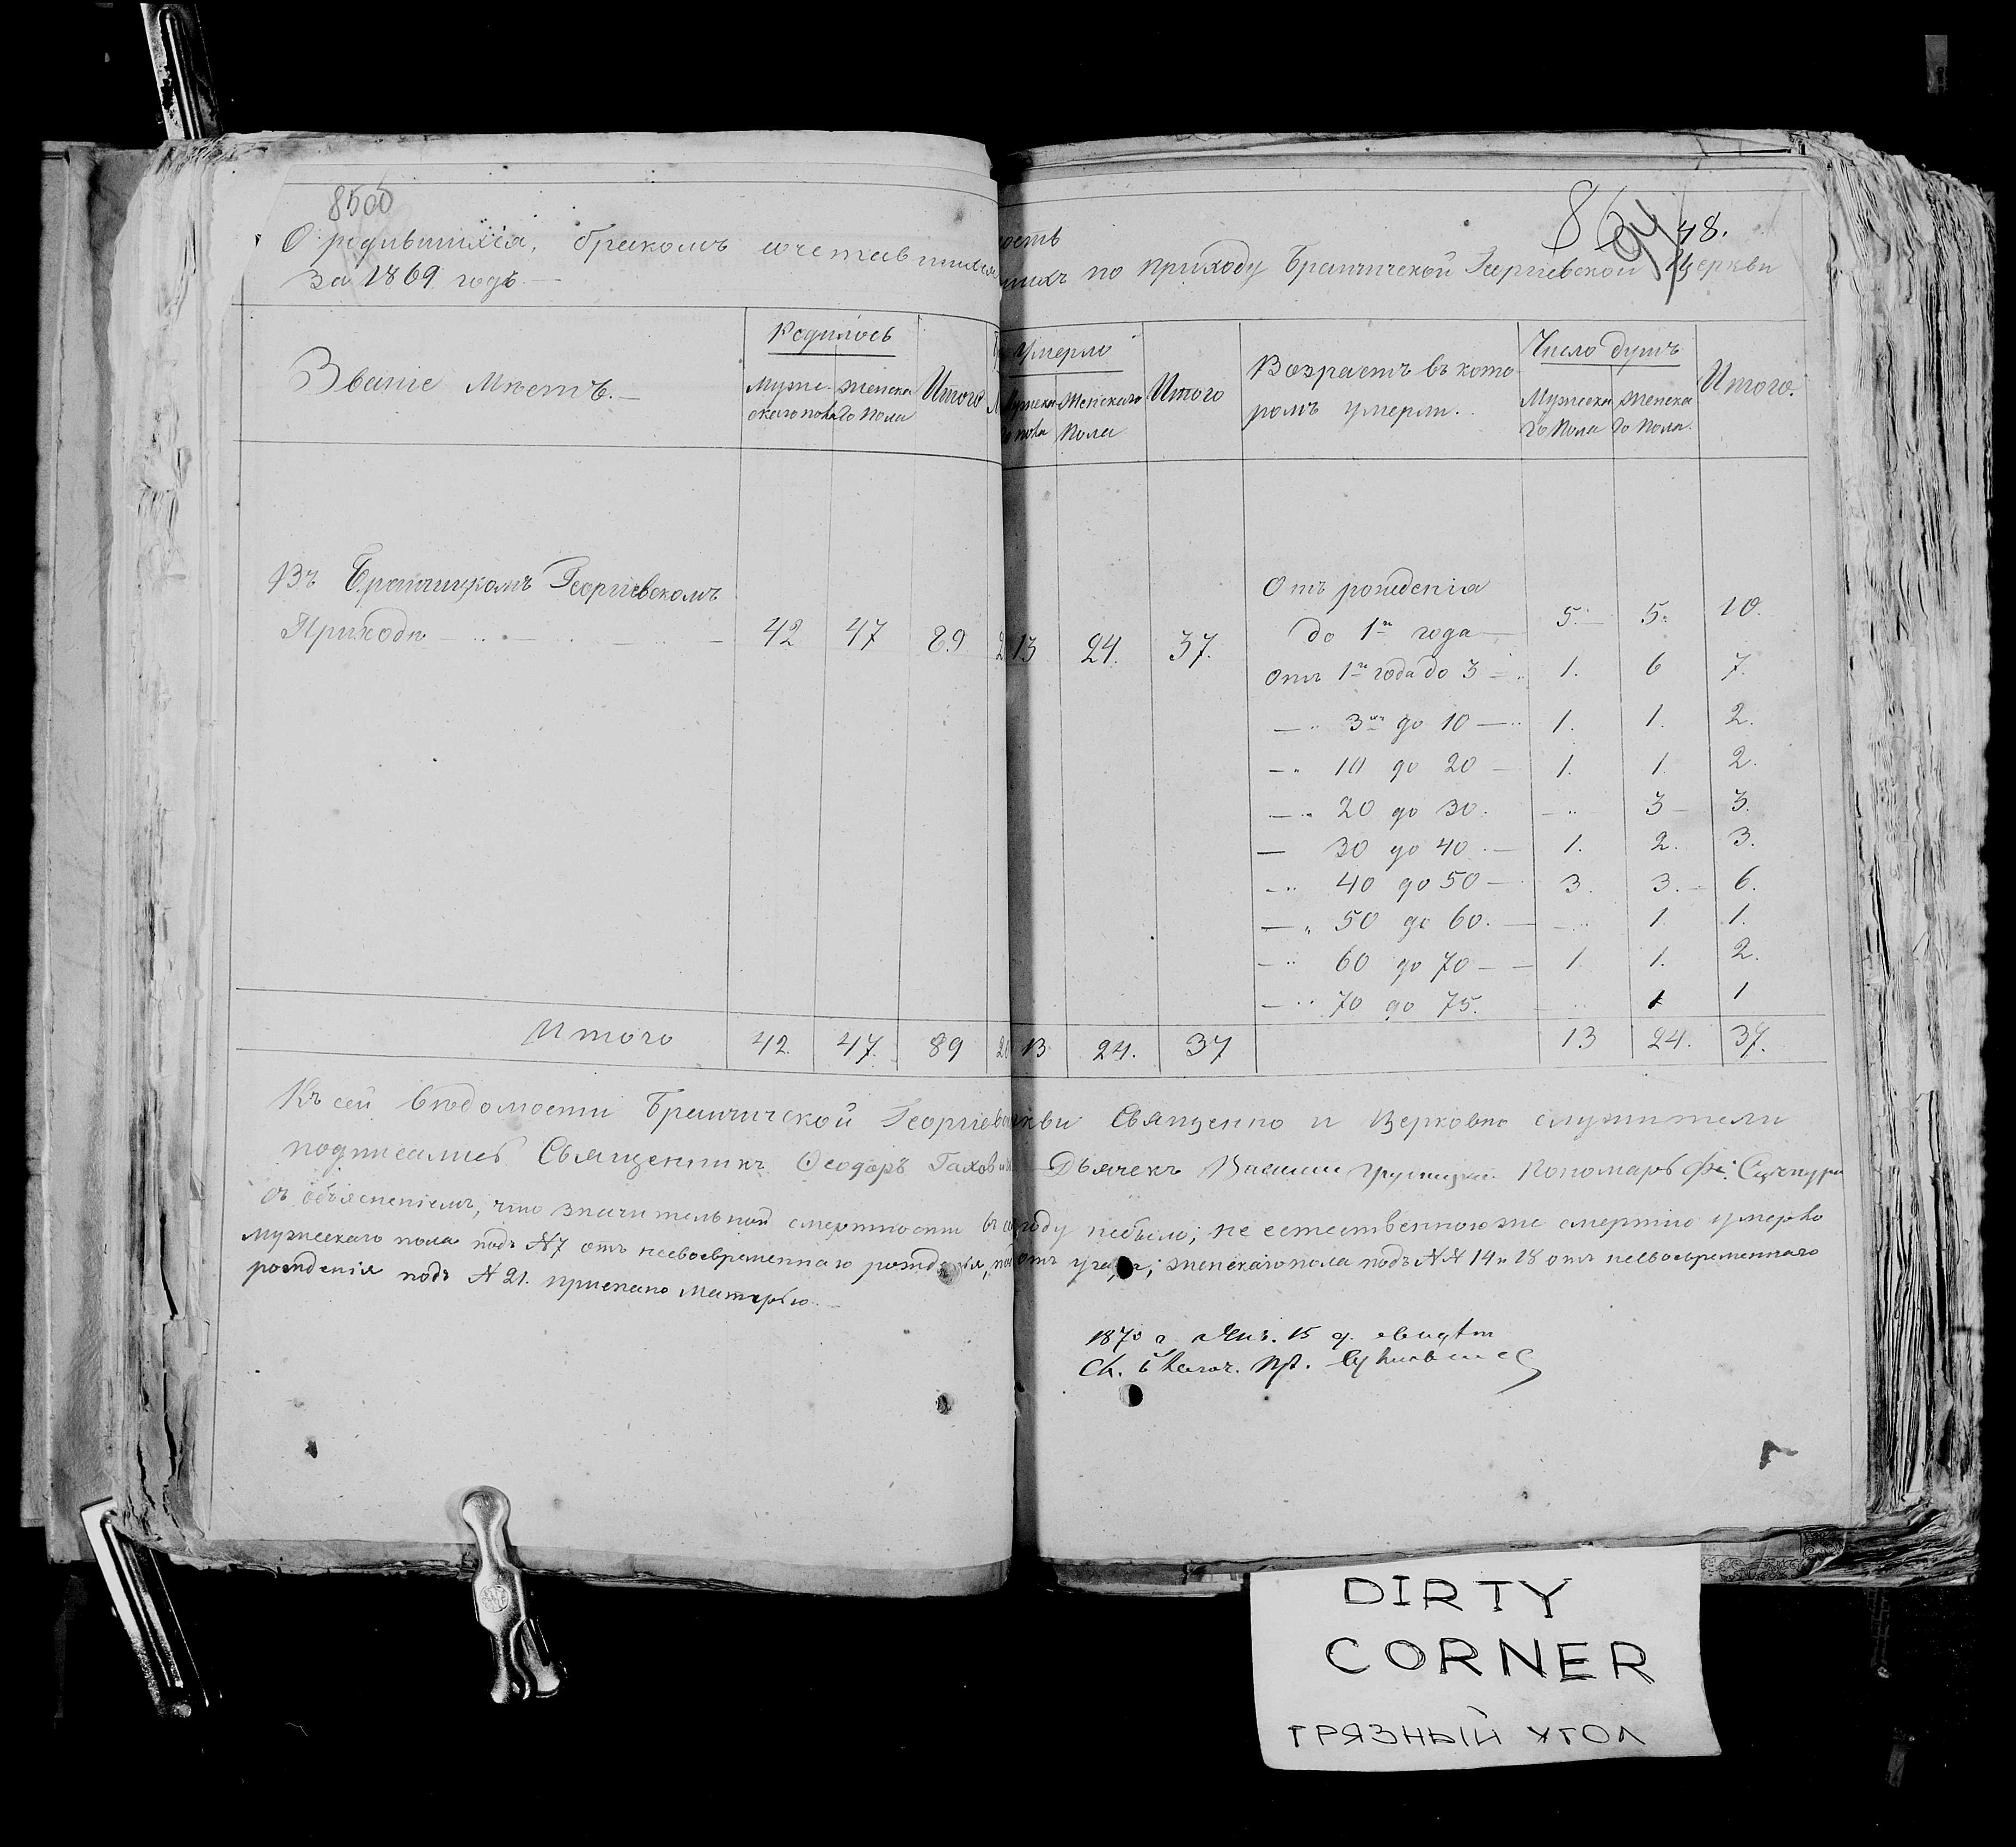 8500
86 94 48.
ость
О родившихся, бракомъ сочетавшихся
шихъ по приходу Бранчичской Георгіевской Церкви
за 1869 годъ.
Званіе Мѣстъ.
Родилось
Мужескаго пола
Женскаго Пола
Итого
Умерло
Женскаго Пола
Итого
Возрастъ въ которомъ умерли.
Число душъ
Мужескаго Пола
Женскаго Пола.
Итого.
Въ Георгіевскомъ
Приходѣ 42 47 89 13 24. 37.
Отъ рожденія
до 1го года 5. 5. 10.
Отъ 1го года до 3 1. 6 7.
— 3хъ до 10 — 1. 1. 2.
— 10 до 20 — 1. 1. 2.
— 20 до 30. — 3 3.
— 30 до 40 — 1. 2. 3.
— 40 до 50 — 3. 3. 6.
— 50 до 60. — 1. 1.
— 60 до 70 — 1. 1. 2.
— 70 до 75. 1 1
Итого 42. 47. 89 20 13 24. 37 13 24. 37.
Къ сей вѣдомости Бранчичской Георгіев кви Священно и Церковно служители
подписались Священникъ Ѳеодоръ Дьячекъ Пономарь
съ объясненіемъ, что значительной смертности въ году небыло; не естественноюже смертію умерло
мужескаго пола подъ №7 отъ несвоевременнаго рожденія, отъ угара; женскаго пола подъ №№ 14 и 18 отъ несвоевременнаго
рожденія подъ № 21. приспано матерью.
1870 г. Янв. 15 д. свидѣт
DIRTY
CORNER
ГРЯЗНЫЙ УГОЛ